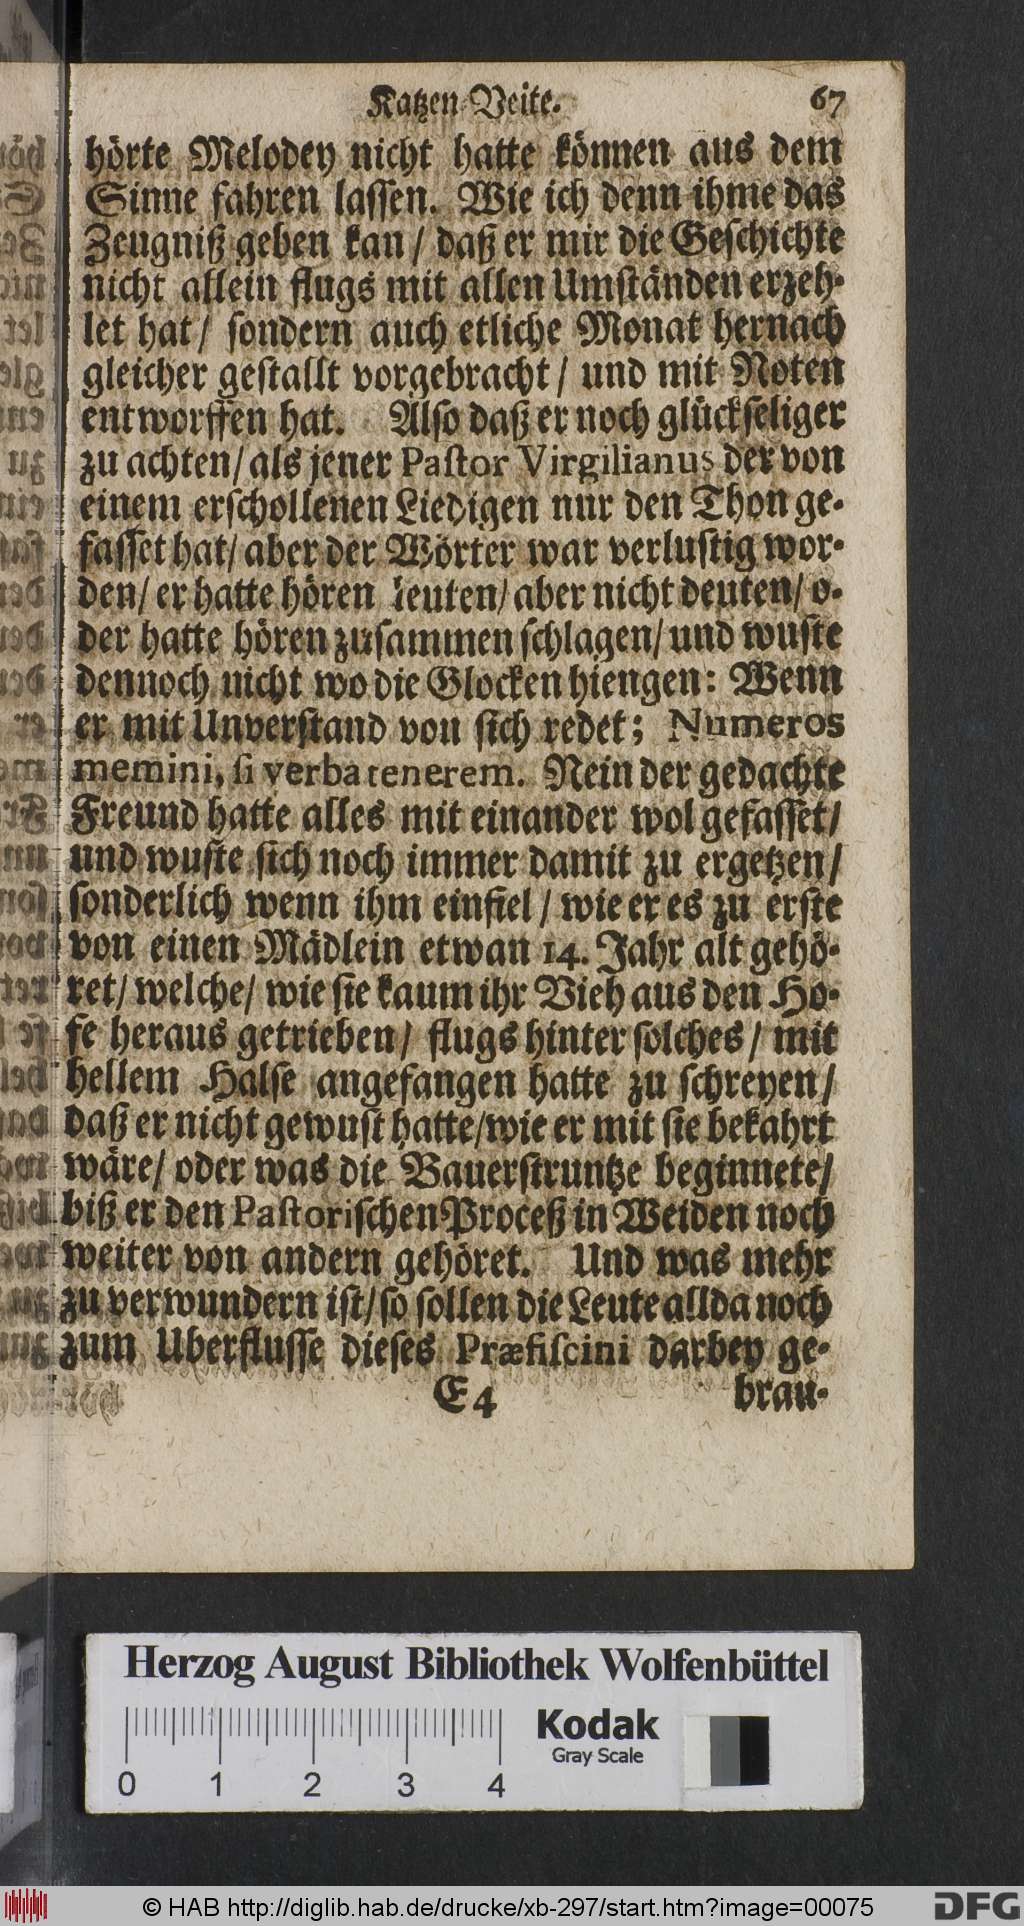 Katzen-Veite. 67
hörte Melodey nicht hatte können aus dem
Sinne fahren lassen. Wie ich denn ihme das
Zeugniß geben kan / daß er mir die Geschichte
nicht allein flugs mit allen Umständen erzeh-
let hat / sondern auch etliche Monat hernach
gleicher gestallt vorgebracht / und mit Noten
entworffen hat. Also daß er noch glückseliger
zu achten / als jener Pastor Virgilianus der von
einem erschollenen Liedigen nur den Thon ge-
fasset hat / aber der Wörter war verlustig wor-
den / er hatte hören leuten / aber nicht deuten / o-
der hatte hören zusammen schlagen / und wuste
dennoch nicht wo die Glocken hiengen: Wenn
er mit Unverstand von sich redet; Numeros
memini, si verba tenerem. Nein der gedachte
Freund hatte alles mit einander wol gefasset /
und wuste sich noch immer damit zu ergetzen /
sonderlich wenn ihm einfiel / wie er es zu erste
von einen Mädlein etwan 14. Jahr alt gehö-
ret / welche / wie sie kaum ihr Vieh aus den Ho-
fe heraus getrieben / flugs hinter solches / mit
hellem Halse angefangen hatte zu schreyen /
daß er nicht gewust hatte / wie er mit sie bekahrt
wäre / oder was die Bauerstruntze beginnete /
biß er den Pastorischen Proceß in Weiden noch
weiter von andern gehöret. Und was mehr
zu verwundern ist / so sollen die Leute allda noch
zum Uberflusse dieses Præfiscini darbey ge-
E 4 brau-
Herzog August Bibliothek Wolfenbüttel
Kodak
Gray Scale
0 1 2 3 4
© HAB http://diglib.hab.de/drucke/xb-297/start.htm?image=00075
DFG